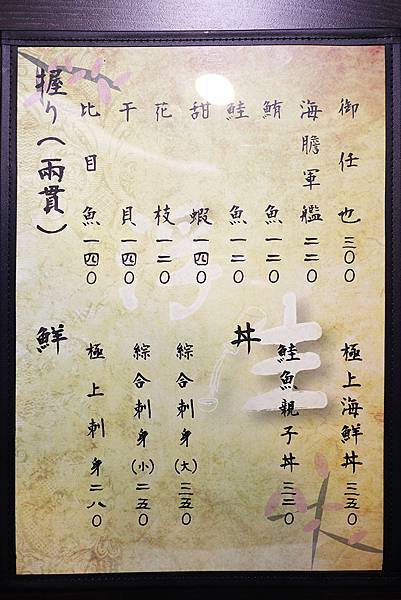 御任也三〇〇
海膽軍艦二二〇
鮪魚一二〇
鮭魚一二〇
甜蝦一四〇
花枝一二〇
干貝一四〇
比目魚一四〇
握り(兩貫)
極上海鮮丼三五〇
鮭魚親子丼三二〇
丼
綜合刺身(大)三五〇
綜合刺身(小)二五〇
極上刺身二八〇
鮮